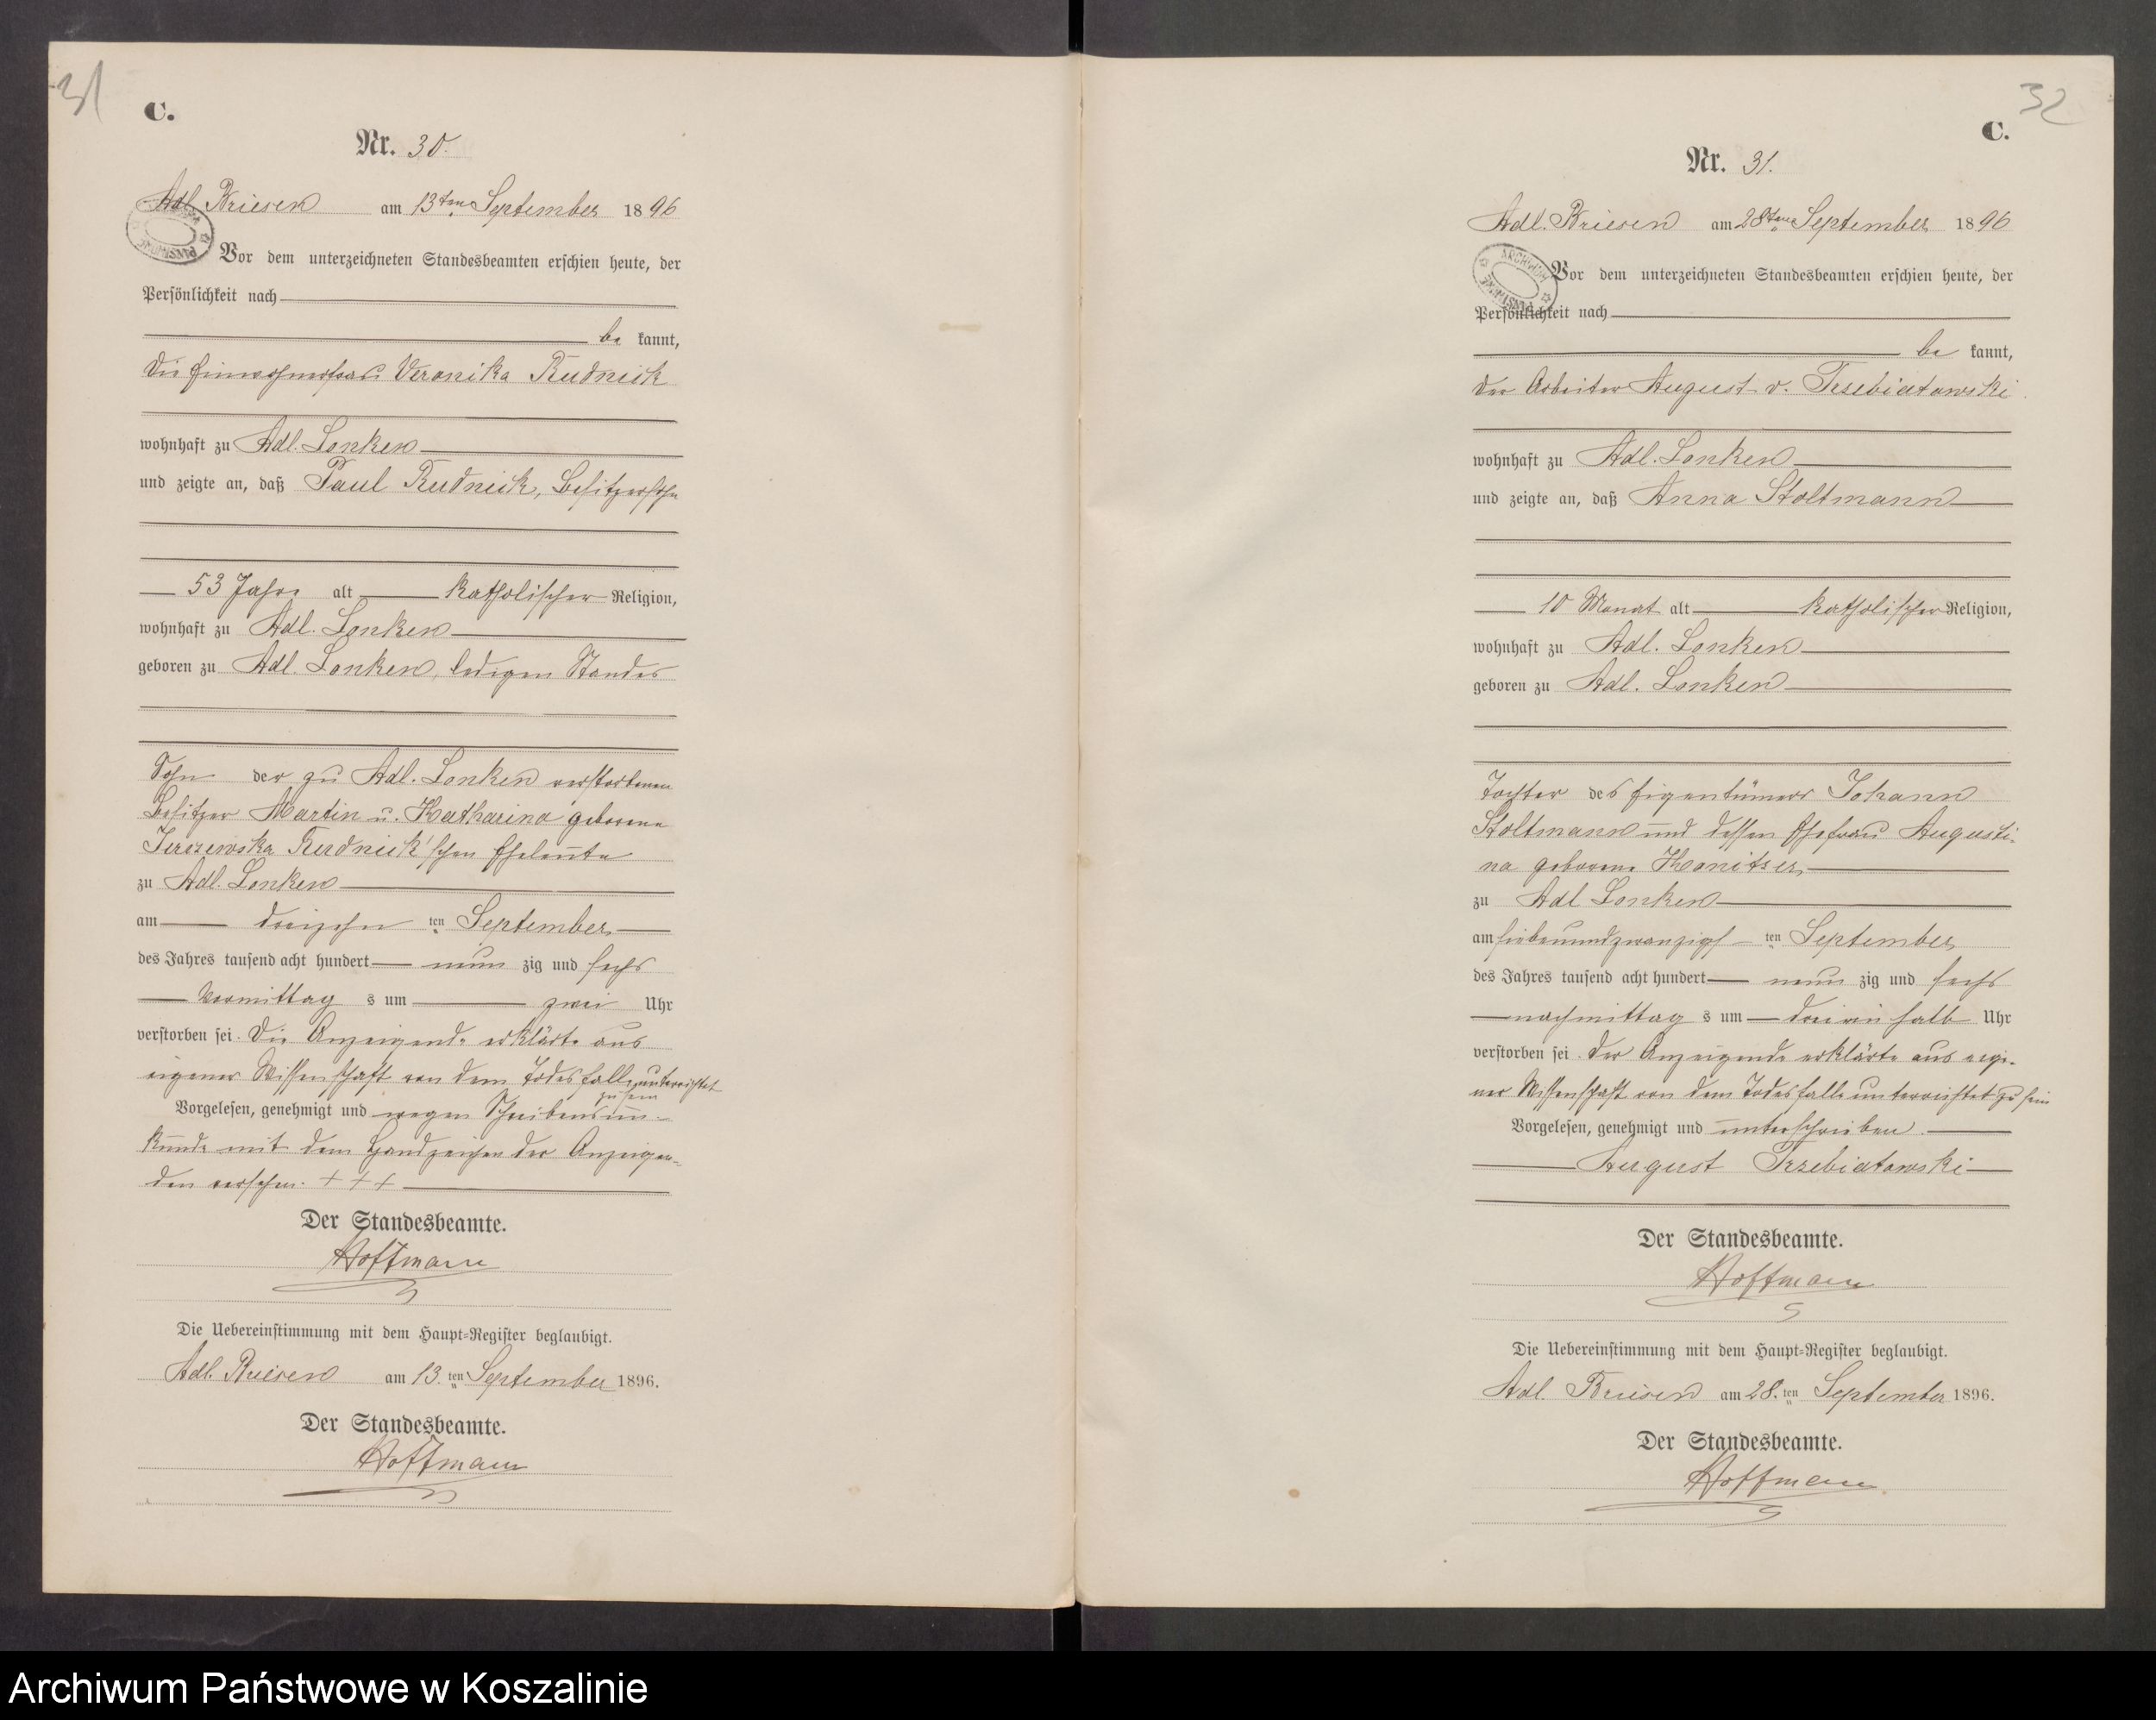 31
C.
Nr. 30.
Adl. Briesen am 13ten September 1896
Vor dem unterzeichneten Standesbeamten erschien heute, der
Persönlichkeit nach
be kannt,
die Veronika Rudnick
wohnhaft zu Adl. Lonken
und zeigte an, daß Paul Rudnick, Besitzersohn
53 Jahre alt katholischer Religion,
wohnhaft zu Adl. Lonken
geboren zu Adl. Lonken, ledigen Standes
Sohn der zu Adl. Lonken verstorbenen
Besitzer Martin u. Katharina geborene
Rudnick'schen Eheleute
zu Adl. Lonken
am dreizehn ten September
des Jahres tausend acht hundert neun zig und sechs
Vormittag s um zwei Uhr
verstorben sei. Die Anzeigende erklärte aus
eigener Wissenschaft von dem Todesfalle unterrichtet
zu sein
Vorgelesen, genehmigt und wegen Schreibensun-
kunde mit dem Handzeichen der Anzeigen-
den versehen. + + +
Der Standesbeamte.
Hoffmann
Die Uebereinstimmung mit dem Haupt-Register beglaubigt.
Adl. Briesen am 13. ten September 1896.
Der Standesbeamte.
Hoffmann
32
C.
Nr. 31.
Adl. Briesen am 28ten September 1896
ARCHIWUM PAŃSTWOWE
Vor dem unterzeichneten Standesbeamten erschien heute, der
Persönlichkeit nach
be kannt,
der Arbeiter August v. Trzebiatowski
wohnhaft zu Adl. Lonken
und zeigte an, daß Anna Stoltmann
10 Monat alt katholischer Religion,
wohnhaft zu Adl. Lonken
geboren zu Adl. Lonken
Tochter des Eigentümers Johann
Stoltmann und dessen Ehefrau Augusti-
na geborene Konitzer
zu Adl. Lonken
am siebenundzwanzigst ten September
des Jahres tausend acht hundert neun zig und sechs
nachmittag s um drei ein halb Uhr
verstorben sei. Der Anzeigende erklärte aus eige-
ner Wissenschaft von dem Todesfalle unterrichtet zu sein
Vorgelesen, genehmigt und unterschrieben.
August Trzebiatowski
Der Standesbeamte.
Hoffmann
Die Uebereinstimmung mit dem Haupt-Register beglaubigt.
Adl. Briesen am 28. ten September 1896.
Der Standesbeamte.
Hoffmann
Archiwum Państwowe w Koszalinie